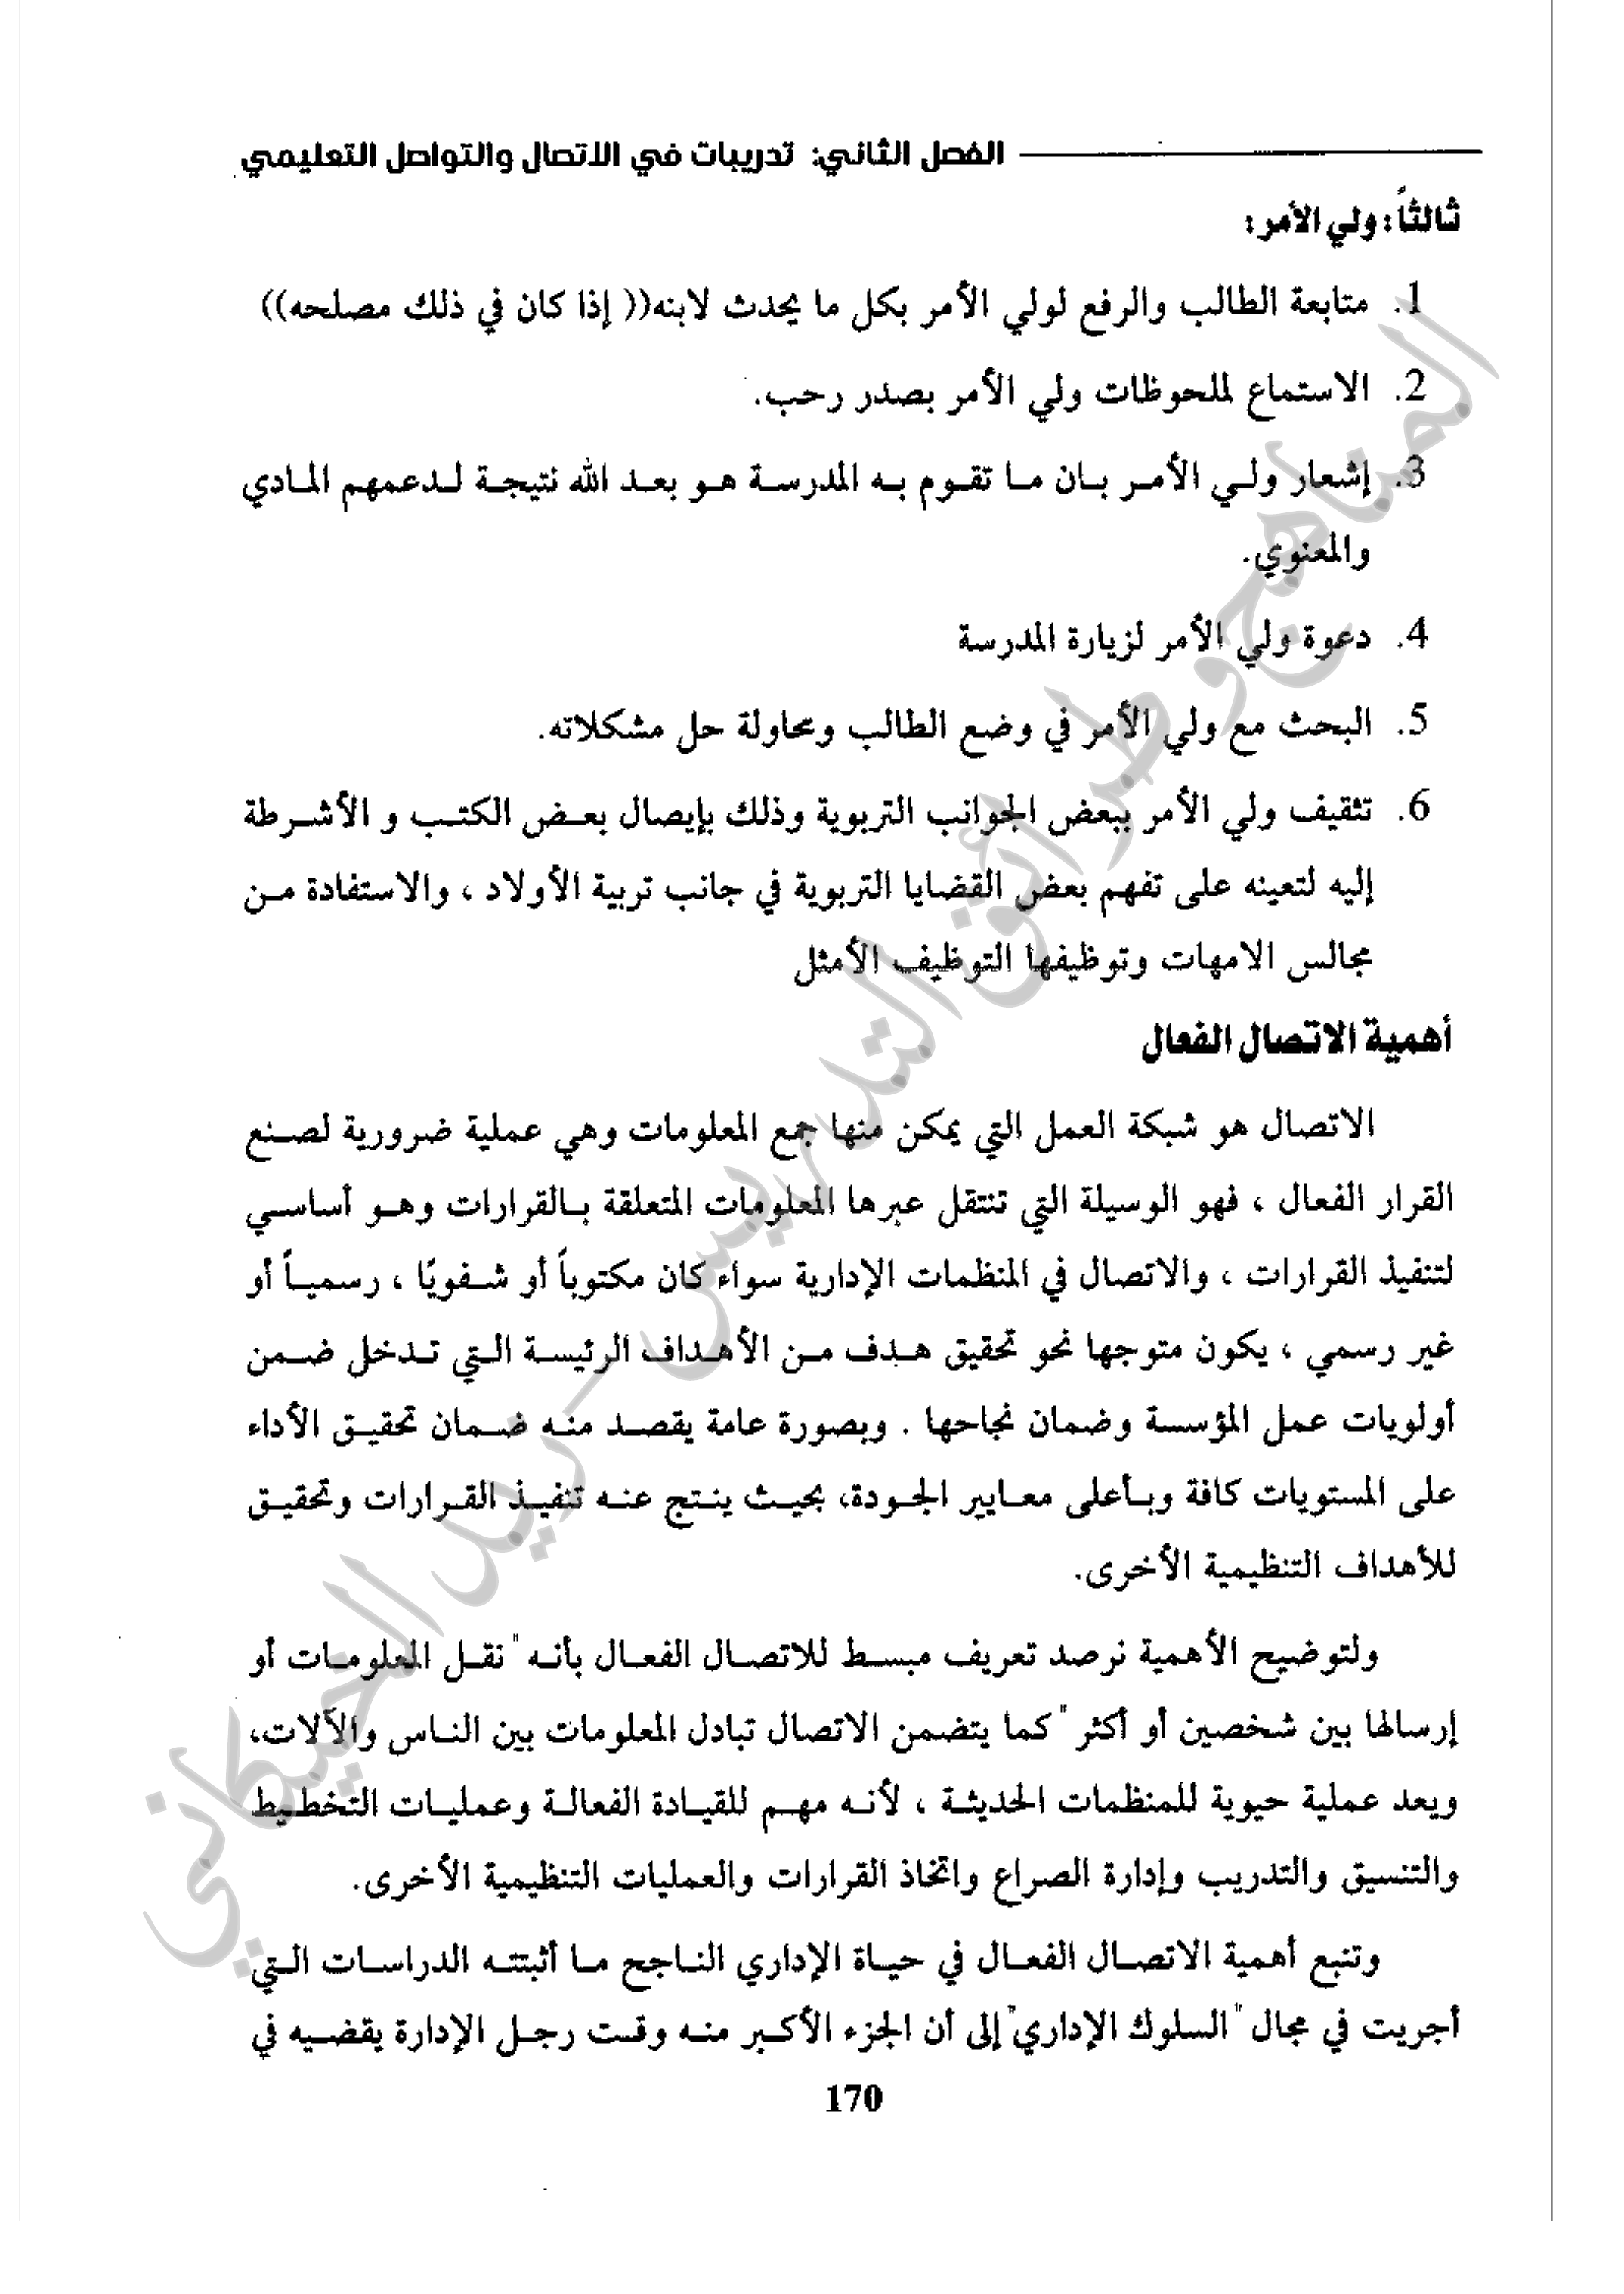 الفصل الثاني: تدريبات في الاتصال والتواصل التعليمي
ثالثاً: ولي الأمر:
1. متابعة الطالب والرفع لولي الأمر بكل ما يحدث لابنه(( إذا كان في ذلك مصلحه))
2. الاستماع لملحوظات ولي الأمر بصدر رحب.
3. إشعار ولي الأمر بان ما تقوم به المدرسة هو بعد الله نتيجة لدعمهم المادي
والمعنوي.
4. دعوة ولي الأمر لزيارة المدرسة
5. البحث مع ولي الأمر في وضع الطالب ومحاولة حل مشكلاته.
6. تثقيف ولي الأمر ببعض الجوانب التربوية وذلك بإيصال بعض الكتب و الأشرطة
إليه لتعينه على تفهم بعض القضايا التربوية في جانب تربية الأولاد ، والاستفادة من
مجالس الامهات وتوظيفها التوظيف الأمثل
أهمية الاتصال الفعال
الاتصال هو شبكة العمل التي يمكن منها جمع المعلومات وهي عملية ضرورية لصنع
القرار الفعال ، فهو الوسيلة التي تنتقل عبرها المعلومات المتعلقة بالقرارات وهو أساسي
لتنفيذ القرارات ، والاتصال في المنظمات الإدارية سواء كان مكتوباً أو شفويًا ، رسمياً أو
غير رسمي ، يكون متوجها نحو تحقيق هدف من الأهداف الرئيسة التي تدخل ضمن
أولويات عمل المؤسسة وضمان نجاحها . وبصورة عامة يقصد منه ضمان تحقيق الأداء
على المستويات كافة وبأعلى معايير الجودة، بحيث ينتج عنه تنفيذ القرارات وتحقيق
للأهداف التنظيمية الأخرى.
ولتوضيح الأهمية نرصد تعريف مبسط للاتصال الفعال بأنه " نقل المعلومات أو
إرسالها بين شخصين أو أكثر " كما يتضمن الاتصال تبادل المعلومات بين الناس والآلات،
ويعد عملية حيوية للمنظمات الحديثة ، لأنه مهم للقيادة الفعالة وعمليات التخطيط
والتنسيق والتدريب وإدارة الصراع واتخاذ القرارات والعمليات التنظيمية الأخرى.
وتنبع أهمية الاتصال الفعال في حياة الإداري الناجح ما أثبتته الدراسات التي
أجريت في مجال "السلوك الإداري" إلى أن الجزء الأكبر منه وقت رجل الإدارة يقضيه في
170
المناهج وطرائق التدريس - ريد الخيكاني